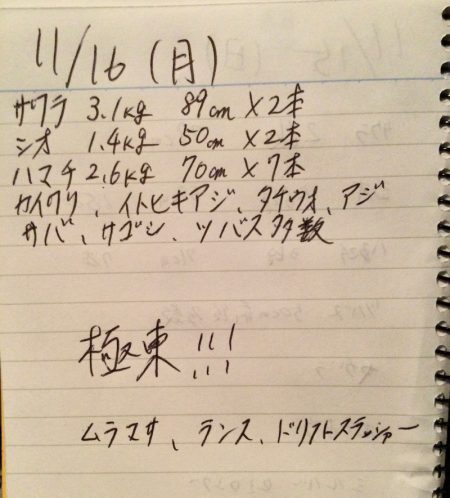 11/16(月)
サワラ 3.1kg 89cm×2本
シオ 1.4kg 50cm×2本
ハマチ 2.6kg 70cm×7本
カイワリ、イトヒキアジ、タチウオ、アジ
サバ、サゴシ、ツバス多数
極東!!!
ムラマサ、ランス、ドリフトスラッシャー